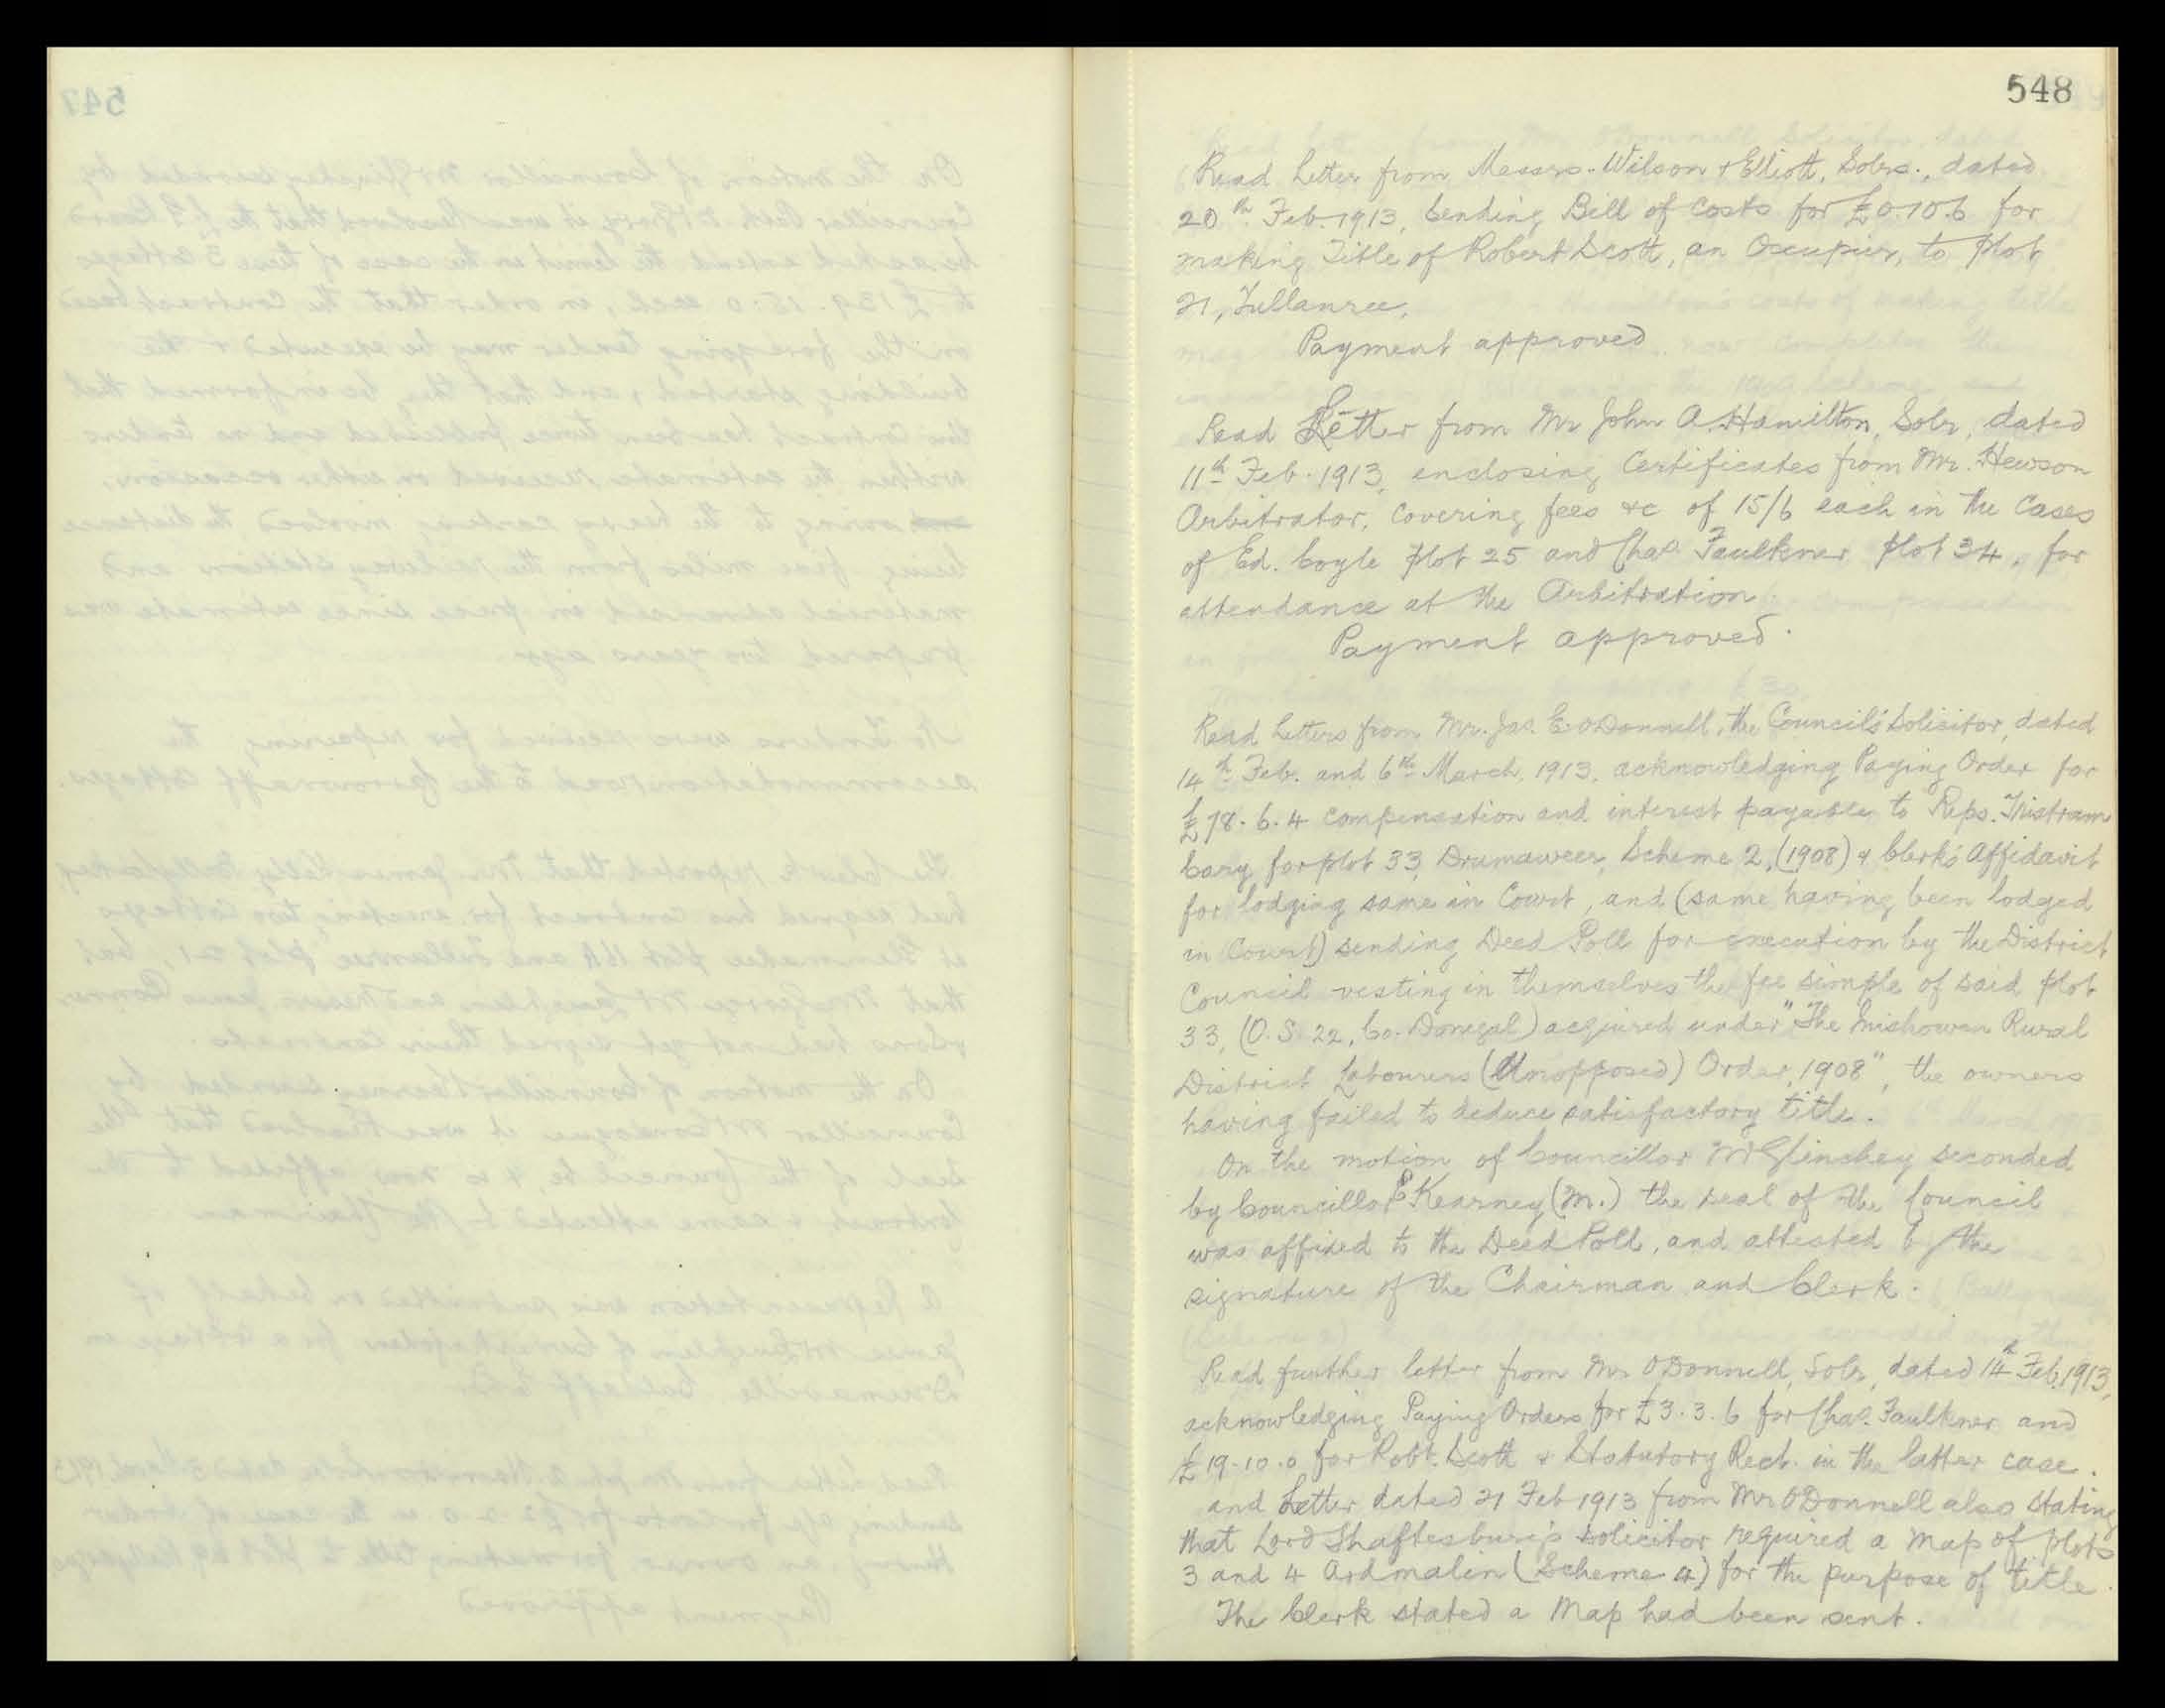 548
Read Letter from Messrs. Wilson & Elliott, Solrs., dated
20th Feb. 1913, sending Bill of Costs for £0.10.6 for
making Title of Robert Scott, an Occupier, to plot
21, Tullanree.
Payment approved.
Read Letter from Mr John A. Hamilton, Solr, dated
11th Feb. 1913, enclosing Certificates from Mr. Hewson
Arbitrator, covering fees &c of 15/6 each in the Cases
of Ed. Coyle plot 25 and Chas. Faulkner plot 34, for
attendance at the Arbitration.
Payment approved.
Read Letters from Mr. Jas. E. O'Donnell, the Council's Solicitor, dated
14th Feb. and 6th March, 1913, acknowledging Paying Order for
£78.6.4 compensation and interest payable to Reps. Tristram
Cary for plot 33, Drumaweer, Scheme 2, (1908) & Clerk's Affidavit
for lodging same in Court, and (same having been lodged
in Court) sending Deed Poll for execution by the District
Council vesting in themselves the fee simple of said plot
33, (O.S. 22, Co. Donegal) acquired under "The Inishowen Rural
District Labourers (Unopposed) Order, 1908", the owners
having failed to deduce satisfactory title.
On the motion of Councillor McGlinchey seconded
by Councillor E Kearney (M.) the seal of the Council
was affixed to the Deed Poll, and attested by the
signature of the Chairman and Clerk.
Read further letter from Mr O'Donnell, Solr, dated 14th Feb. 1913,
acknowledging Paying Orders for £3.3.6 for Chas. Faulkner and
£19-10.0 for Robt. Scott & Statutory Rect. in the latter case.
and Letter dated 21 Feb 1913 from Mr O'Donnell also stating
that Lord Shaftesbury's solicitor required a map of plots
3 and 4 Ardmalin (Scheme 4) for the purpose of title.
The Clerk stated a Map had been sent.